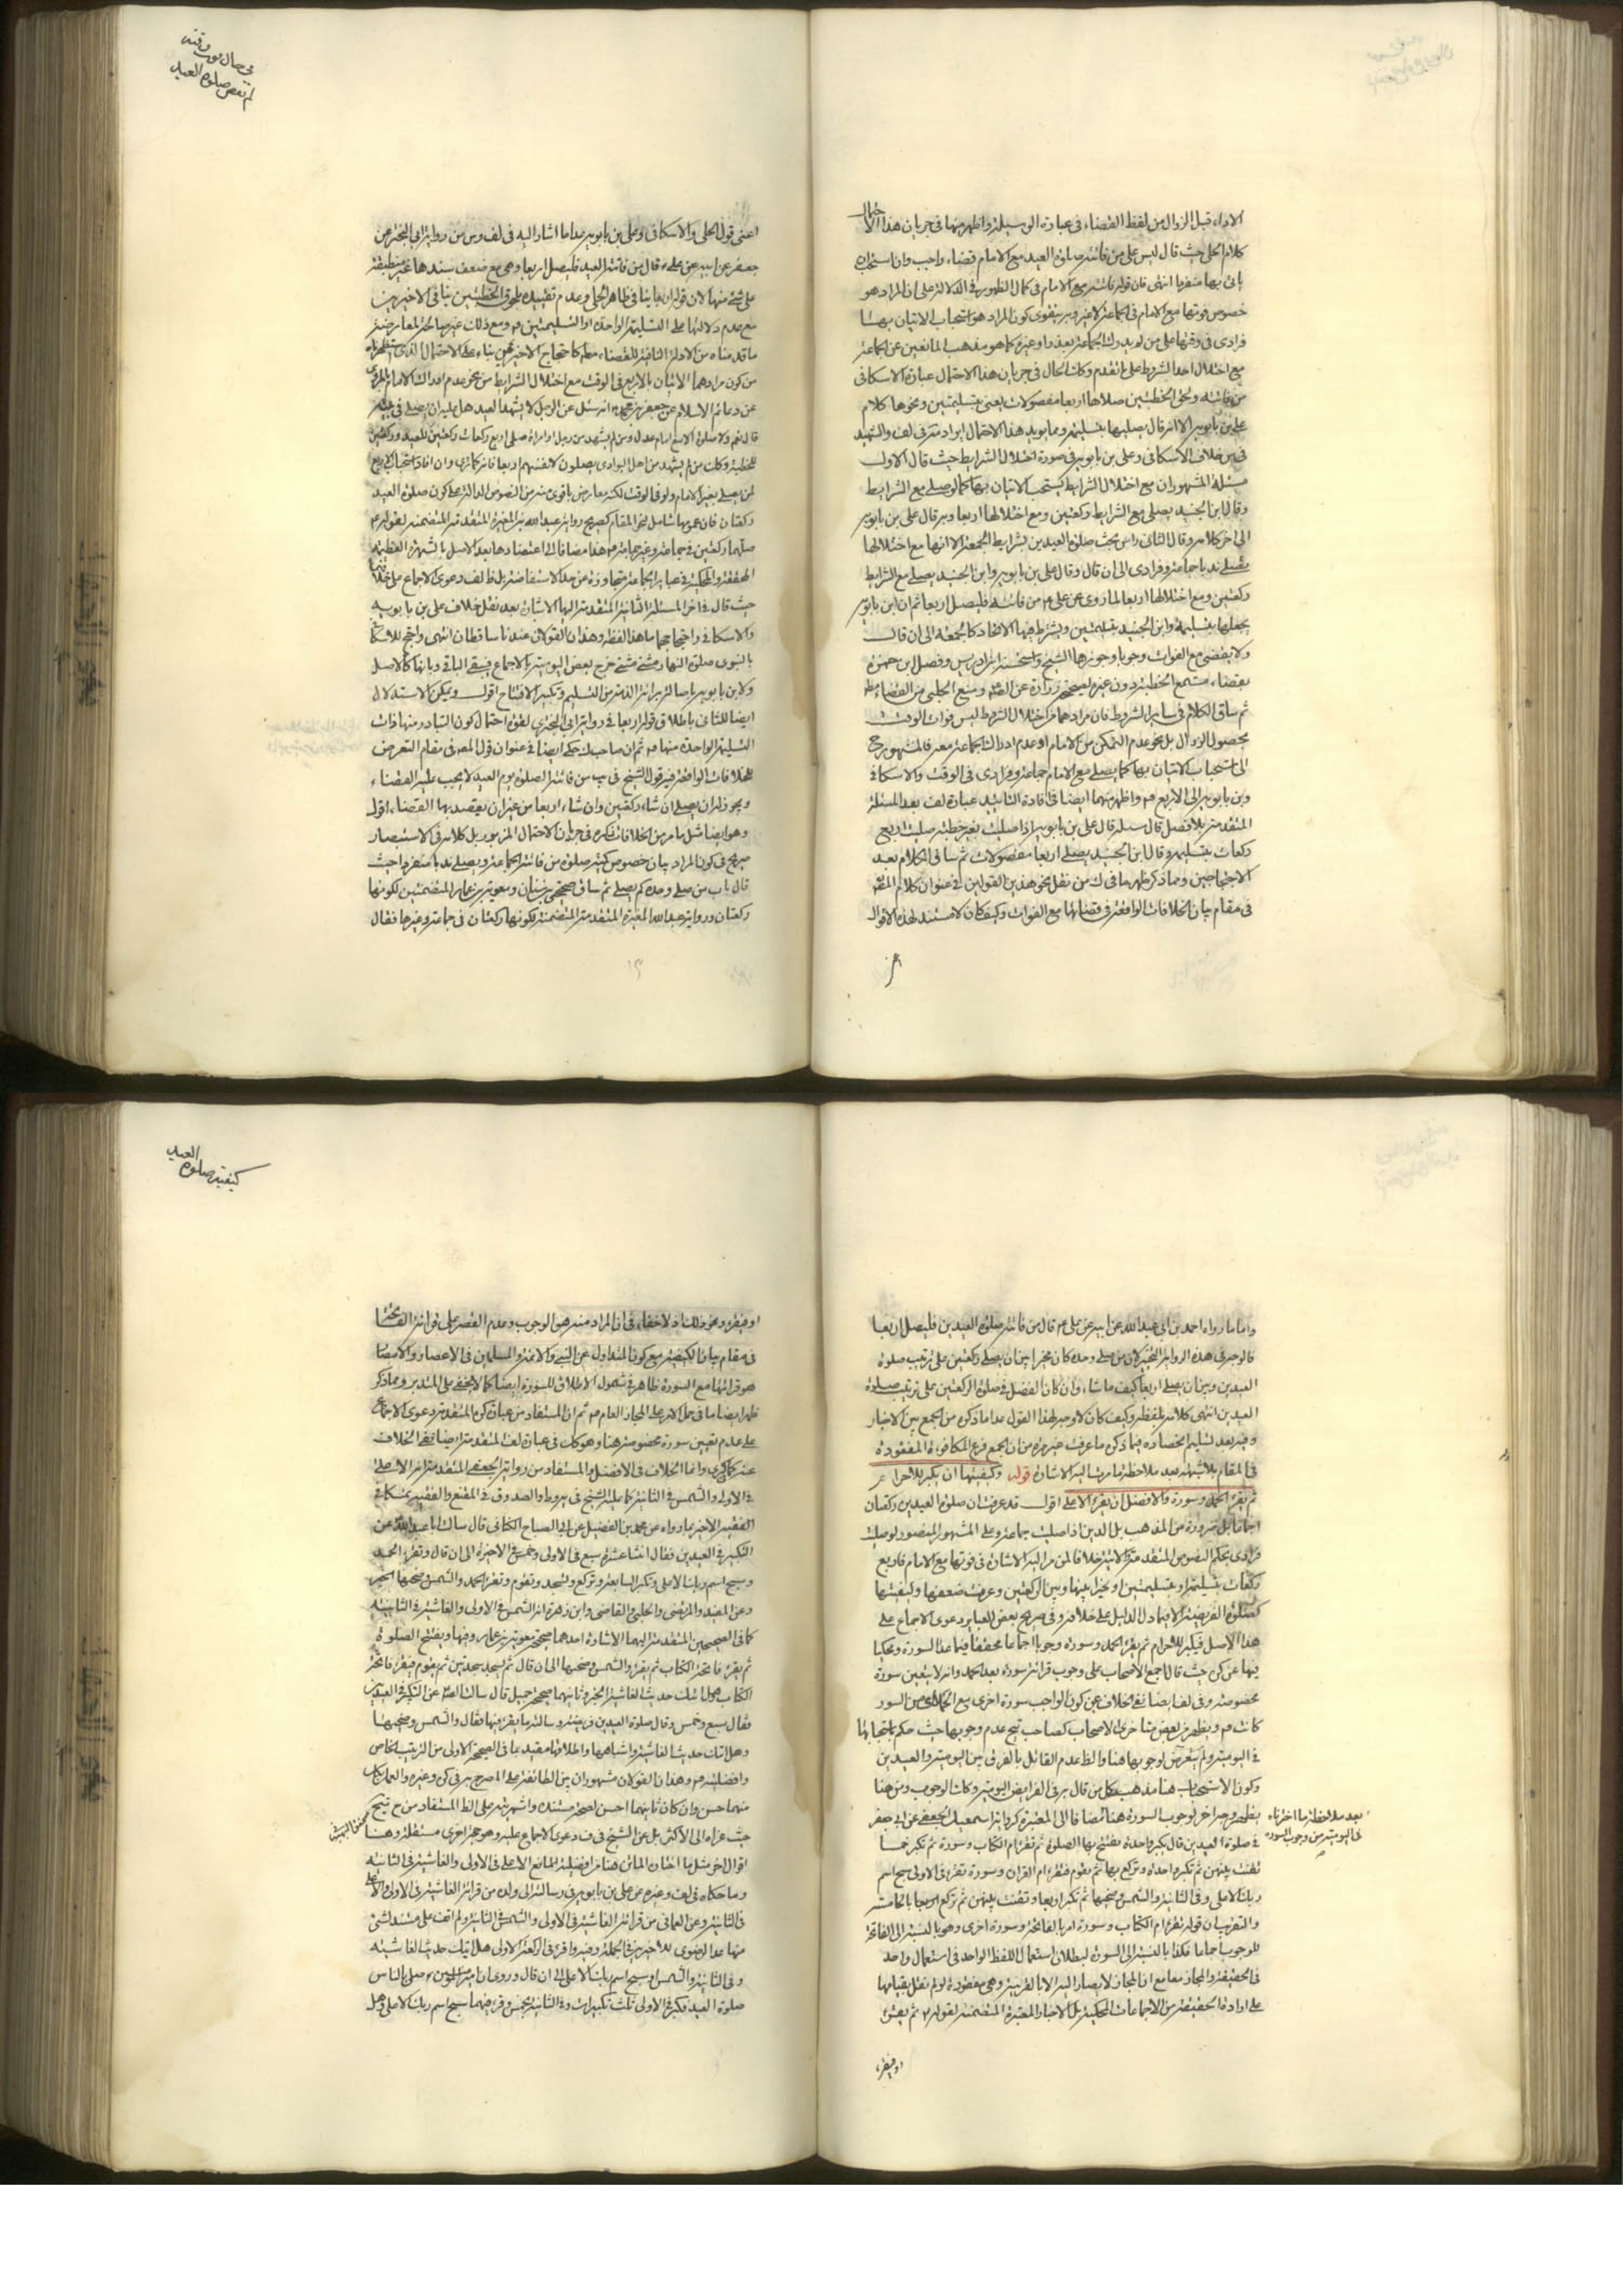 الاداء قبل الزوال من لفظ القضاء فى عبارة الوسيلة واظهر منها فى جريان هذا الاحتمال
كلام الحلى حيث قال ليس على من فاتته صلوة العيد مع الامام قضاء واجب وان استحب له ان
ياتى بها منفردا انتهى فان قوله فاتته مع الامام فى كمال الظهور فى الدلالة على ان المراد هو
خصوص فوتها مع الامام فى الجماعة لا غير وبه يتقوى كون المراد هو استحباب الاتيان بها
فرادى فى وقتها على من لم يدرك الجماعة بعذر او غيره كما هو مذهب المانعين عن الجماعة
مع اختلال احد الشروط على ما تقدم وكك الحال فى جريان هذا الاحتمال عبارة الاسكافى
من فاتته ولحق الخطبتين صلاها اربعا مفصولات يعنى بتسليمتين ونحوها كلام
على بن بابويه الا انه قال يصليها بتسليمة ومما يؤيد هذا الاحتمال ايراد مة فى لف والشهيد
فى س خلاف الاسكافى وعلى بن بابويه فى صورة اختلال الشرايط حيث قال الاول
مسئلة المشهور ان مع اختلال الشرايط يستحب الاتيان بها كما لو صلى مع الشرايط
وقال ابن الجنيد يصلى مع الشرايط ركعتين ومع اختلالها اربعا وبه قال على بن بابويه
الى اخر كلامه وقال الثانى راس بحث صلوة العيدين بشرايط الجمعة الا انها مع اختلالها
يصلى ندبا جماعة وفرادى الى ان قال وقال على بن بابويه وابن الجنيد يصلى مع الشرايط
ركعتين ومع اختلالها اربعا لما روى عن على ع من فاتته فليصل اربعا ثم ان ابن بابويه
يجعلها بتسليمة وابن الجنيد بتسليمتين ويشترط فيها الاتحاد كالجمعة الى ان قال
ولا يقضى مع الفوات وجوبا وجوزها الشيخ واستحسنه ابن ادريس وفصل ابن حمزة
بقضاء مستمع الخطبة دون غيره لصحيحة زرارة عن الصم ومنع الحلبى من القضاء مطم
ثم ساق الكلام فى ساير الشروط فان مرادهما من اختلال الشروط ليس فوات الوقت
بحصول الزوال بل نحو عدم التمكن من الامام او عدم ادراك الجماعة معه فالمشهور ح
الى استحباب الاتيان بها كما يصلى مع الامام جماعة وفرادى فى الوقت والاسكافى
وبن بابويه الى الاربع مم واظهر منهما ايضا فى افادة التاييد عبارة لف بعد المسئلة
المتقدمة بلا فصل قال مسئلة قال على بن بابويه اذا صليت بغير خطبة صليت اربع
ركعات بتسليمة وقال ابن الجنيد يصلى اربعا مفصولات ثم ساق الكلام بعد
الاحتجاجين ومما ذكر ظهر ما فى ك من نقل نحو هذين القولين فى عنوان كلام المص
فى مقام بيان الخلافات الواقعة فى قضائها مع الفوات وكيف كان لا مستند لهذه الاقوال
فى حال فوت وقته
لم تقض صلوة العيد
اعنى قول الحلى والاسكافى وعلى بن بابويه عدا ما اشار اليه فى لف وس من رواية ابى البخترى عن
جعفر عن ابيه عن على ع قال من فاتته العيد فليصل اربعا وهى مع ضعف سندها غير منطبقة
على شئ منها لان قوله اربعا ينافى ظاهر الحلى وعدم تقييده بلحوق الخطبتين ينافى الاخيرين
مع عدم دلالتها على التسليمة الواحدة او التسليمتين مم ومع ذلك غير صالحة لمعارضة
ما قدمناه من الادلة النافية للقضاء مطم كاحتجاج الاخيرين بناء على الاحتمال الذى استظهرناه
من كون مرادهما الاتيان بالاربع فى الوقت مع اختلال الشرايط من نحو عدم ادراك الامام بالمروى
عن دعائم الاسلام عن جعفر بن محمد انه سئل عن الرجل لا يشهد العيد هل عليه ان يصلى فى بيته
قال نعم ولا صلوة الا مع امام عدل ومن لم يشهد من رجل او امراة صلى اربع ركعات ركعتين للعيد وركعتين
للخطبة وكك من لم يشهد من اهل البوادى يصلون لانفسهم اربعا فانه كما ترى وان افاد استحباب الاربع
لمن يصلى بغير الامام ولو فى الوقت لكنه معارض باقوى منه من النصوص الدالة على كون صلوة العيد
ركعتان فان عمومها شامل لنحو المقام كصريح رواية عبد الله بن المغيرة المتقدمة المتضمنة لقوله ع
صلهما ركعتين فى جماعة وغير جماعة مم هذا مضافا الى اعتضادها بعد الاصل بالشهرة العظيمة
المحققة والمحكية فى عباير الجماعة متجاوزة عن حد الاستفاضة بل ظ لف دعوى الاجماع على خلافهما
حيث قال فى اخر المسئلة الثانية المتقدمة اليها الاشارة بعد نقل خلاف على بن بابويه
والاسكافى واحتجاجهما ما هذا لفظه وهذان القولان عندنا ساقطان انتهى واحتج للاسكافى
بالنبوى صلوة النهار مثنى مثنى خرج بعض اليومية بالاجماع فيبقى الباقى وبانها كالاصل
ولابن بابويه باصالة برائة الذمة من التسليم وتكبير الافتتاح اقول ويمكن الاستدلال
ايضا للثانى باطلاق قوله اربعا فى رواية ابى البخترى لقوة احتمال كون المتبادر منها ذات
التسليمة الواحدة منها مم ثم ان صاحب ك حكى ايضا فى عنوان قول المص فى مقام التعرض
للخلافات الواقعة فيه قول الشيخ فى يب من فاتته الصلوة يوم العيد لا يجب عليه القضاء
ويجوز له ان يصلى ان شاء ركعتين وان شاء اربعا من غير ان يقصد بها القضاء اقول
وهو ايضا مثل ما مر من الخلافات فى جريان الاحتمال المزبور بل كلامه فى الاستبصار
صريح فى كون المراد بيان خصوص كيفية صلوة من فاتته الجماعة ويصلى ندبا منفردا حيث
قال باب من صلى وحده كم يصلى ثم ساق صحيحتى بن سنان ومعوية بن عمار المتضمنتين لكونها
ركعتان ورواية عبد الله المغيرة المتقدمة المتضمنة لكونها ركعتان فى جماعة وغيرها فقال
واما ما رواه احمد بن ابى عبد الله عن ابيه عن على ع قال من فاتته صلوة العيدين فليصل اربعا
فالوجه فى هذه الرواية التخيير لان من صلى وحده كان مخيرا بين ان يصلى ركعتين على ترتيب صلوة
العيدين وبين ان يصلى اربعا كيف ما شاء وان كان الفضل فى صلوة الركعتين على ترتيب صلوة
العيدين انتهى كلامه بلفظه وكيف كان لا وجه لهذا القول عدا ما ذكره من الجمع بين الاخبار
وفيه بعد تسليم انحصاره فيما ذكره ما عرفت غير مرة من ان الجمع فرع المكافوة المفقودة
فى المقام بلا شبهة بعد ملاحظة ما مرت اليه الاشارة قوله وكيفيتها ان يكبر للاحرام
ثم يقرء الحمد وسورة والافضل ان يقرء الاعلى اقول قد عرفت ان صلوة العيدين ركعتان
اجماعا بل ضرورة من المذهب بل الدين اذا صليت جماعة وعلى المشهور المنصور لو صليت
فرادى بحكم النصوص المتقدمة الاتية خلافا لمن مر اليه الاشارة فى فوتها مع الامام فاربع
ركعات بتسليمة او بتسليمتين او تخيرا بينها وبين الركعتين وعرفت ضعفها وكيفيتها
كصلوة الفريضة الا فيما دل الدليل على خلافه وفى صريح بعض العباير دعوى الاجماع على
هذا الاصل فيكبر للاحرام ثم يقرء الحمد وسورة وجوبا اجماعا محققا فيما عدا السورة ومحكيا
فيها عن كرى حيث قال اجمع الاصحاب على وجوب قرائة سورة بعد الحمد وانه لا يتعين سورة
مخصوصة وفى لف ايضا نفى الخلاف عن كون الواجب سورة اخرى مع الحمد اى من السور
كانت مم ويظهر من بعض متاخرى الاصحاب كصاحب تيح عدم وجوبها حيث حكم باستحبابها
فى اليومية ولم يتعرض لوجوبها هنا والظ عدم القائل بالفرق بين اليومية والعيدين
وكون الاستحباب هنا مذهب كل من قال به فى الفرايض اليومية وكك الوجوب ومن هنا
بعد ملاحظة ما اخترناه
فى اليومية من وجوب السورة
يظهر وجه اخر لوجوب السورة هنا مضافا الى المعتبرة كرواية اسمعيل الجعفى عن ابى جعفر
فى صلوة العيدين قال يكبر واحدة يفتتح بها الصلوة ثم تقرء ام الكتاب وسورة ثم تكبر خمسا
تقنت بينهن ثم تكبر واحدة وتركع بها ثم يقوم فيقرء ام القران وسورة تقرء فى الاولى سبح اسم
ربك الاعلى وفى الثانية والشمس وضحيها ثم تكبر اربعا وتقنت بينهن ثم تركع بالخامسة
والتقريب ان قوله تقرء ام الكتاب وسورة امر بالفاتحة وسورة اخرى وهو بالنسبة الى الفاتحة
للوجوب اجماعا فكذا بالنسبة الى السورة لبطلان استعمال اللفظ الواحد فى استعمال واحد
فى الحقيقة والمجاز معا مع ان المجاز لا يصار اليه الا بالقرينة وهى مفقودة لو لم نقل بقيامها
على ارادة الحقيقة من الاجماعات المحكية بل الاخبار المعتبرة المتضمنة لقوله ثم يقرء
او فيقرء
كيفية صلوة العيد
او فيقرء ونحو ذلك اذ لا خفاء فى ان المراد منه هو الوجوب وعدم القصر على قرائة الفاتحة
فى مقام بيان الكيفية مع كون المتداول عن النبى والائمة والمسلمين فى الاعصار والامصار
هو قرائتها مع السورة ظاهر فى شمول الاطلاق للسورة ايضا كما لا يخفى على المتدبر ومما ذكر
ظهر ايضا ما فى حمل الامر على المجاز العام مم ثم ان المستفاد من عبارة كرى المتقدمة دعوى الاجماع
على عدم تعيين سورة مخصوصة هنا وهو كك فى عبارة لف المتقدمة ايضا نفى الخلاف
عنه كالكرى وانما الخلاف فى الافضل والمستفاد من رواية الجعفى المتقدمة انه الاعلى
فى الاولى والشمس فى الثانية كما عليه الشيخ فى يه وط والصدوق فى المقنع والفقيه تمسكا فى
الفقيه الاخير بما رواه عن محمد بن الفضيل عن ابى الصباح الكنانى قال سالت ابا عبد الله عن
التكبير فى العيدين فقال اثنتا عشرة سبع فى الاولى وخمس فى الاخيرة الى ان قال وتقرء الحمد
وسبح اسم ربك الاعلى وتكبر السابعة وتركع وتسجد وتقوم وتقرء الحمد والشمس وضحيها الخبر
وعن المفيد والمرتضى والحلبى والقاضى وابن زهرة انه الشمس فى الاولى والغاشية فى الثانية
كما فى الصحيحين المتقدمة اليهما الاشارة احدهما صحيحة معوية بن عمار وفيها ويفتتح الصلوة
ثم يقرء فاتحة الكتاب ثم يقرء والشمس وضحيها الى ان قال ثم يسجد سجدتين ثم يقوم فيقرء فاتحة
الكتاب وهل اتيك حديث الغاشية الخبر وثانيهما صحيحة جميل قال سالت الصم عن التكبير فى العيدين
فقال سبع وخمس وقال صلوة العيدين فريضة وسالته ما يقرء فيها فقال والشمس وضحيها
وهل اتيك حديث الغاشية واشباهها واطلاقها مقيد بما فى الصحيحة الاولى من الترتيب الخاص
وافضليته مم وهذان القولان مشهوران بين الطائفة على المصرح به فى كرى وغيره والعمل بكل
منهما حسن وان كان ثانيهما احسن لصحة مستنده واشهريته على الظ المستفاد من ح تيح
حيث عزاه الى الاكثر بل عن الشيخ فى ف دعوى الاجماع عليه وهو حجة اخرى مستقلة وهنا
اقوال اخر مثل ما اختاره المات هنا من افضلية الاعلى فى الاولى والغاشية فى الثانية
وما حكاه فى لف وغيره عن على بن بابويه فى رسالته الى ولده من قرائة الغاشية فى الاولى والاعلى
فى الثانية وعن العمانى من قرائة الغاشية فى الاولى والشمس فى الثانية ولم اقف على مستند لشئ
منها عدا الرضوى للاخيرين فى الجملة وفيه واقرء فى الركعة الاولى هل اتيك حديث الغاشية
وفى الثانية والشمس او سبح اسم ربك الاعلى الى ان قال وروى ان امير المؤمنين ع صلى بالناس
صلوة العيد فكبر فى الاولى ثلث تكبيرات وفى الثانية بخمس وقرء فيهما سبح اسم ربك الاعلى وهل